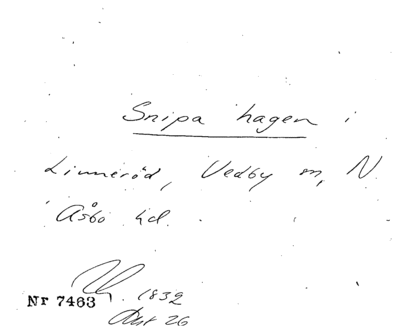 Snipa hagen i
Linneröd, Vedby sn, N
Åsbo hd.
1832
Nr 7463
26